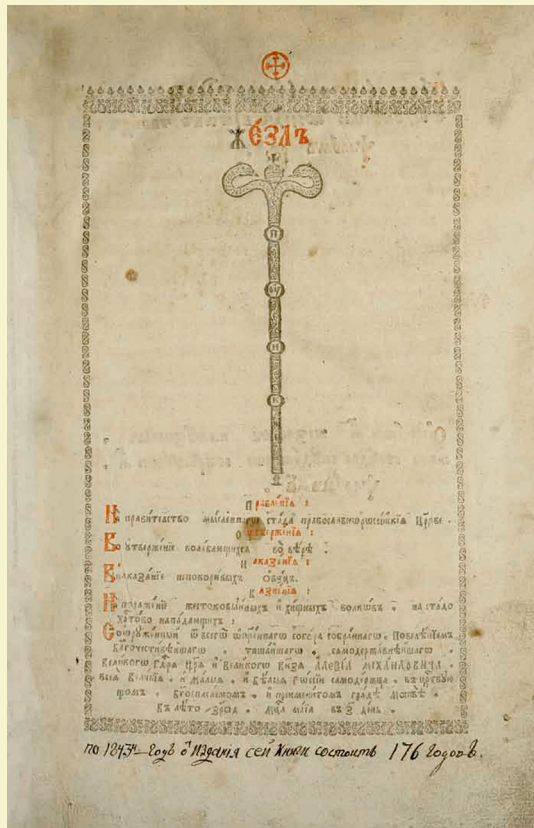 Жезлъ
П
У
Н
К
Правленїѧ :
На правителство мысленнагѡ стада православнороссїйскїѧ Церкве .
Оутверженїѧ :
Во утверженїе колеблющихсѧ во вѣрѣ .
Наказанїѧ :
В наказанїе непокоривыхъ овецъ .
Казненїѧ :
На пораженїе жестоковыйныхъ и хищныхъ волковъ . на стадо
Христово нападающихъ :
Сооруженный ѿ всегѡ ѡсвященнагѡ собора собраннагѡ . Повелѣнїемъ
Благочестивѣйшагѡ . тишайшагѡ . самодержавнѣйшагѡ .
Великогѡ Гдрѧ Црѧ и Великогѡ Кнѕѧ АЛЕѮІѦ МИХАИЛОВИЧА .
всеѧ Великїѧ . и Малыѧ . и Бѣлыѧ Рѡссїи самодержца . въ царствую
щемъ . Богоспасаемомъ . и преименитомъ градѣ Москвѣ .
Въ лѣто мца маїа въ день .
по 1843й Годъ ѿ изданїя сей Книги состоитъ 176 Годовъ.